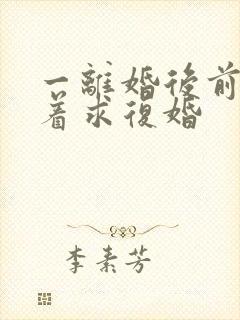 一離婚後前
着求復婚
李素芳